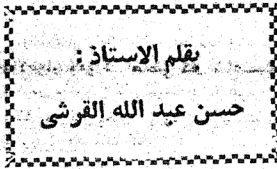 بقلم الاستاذ :
حسن عبد الله القرشى